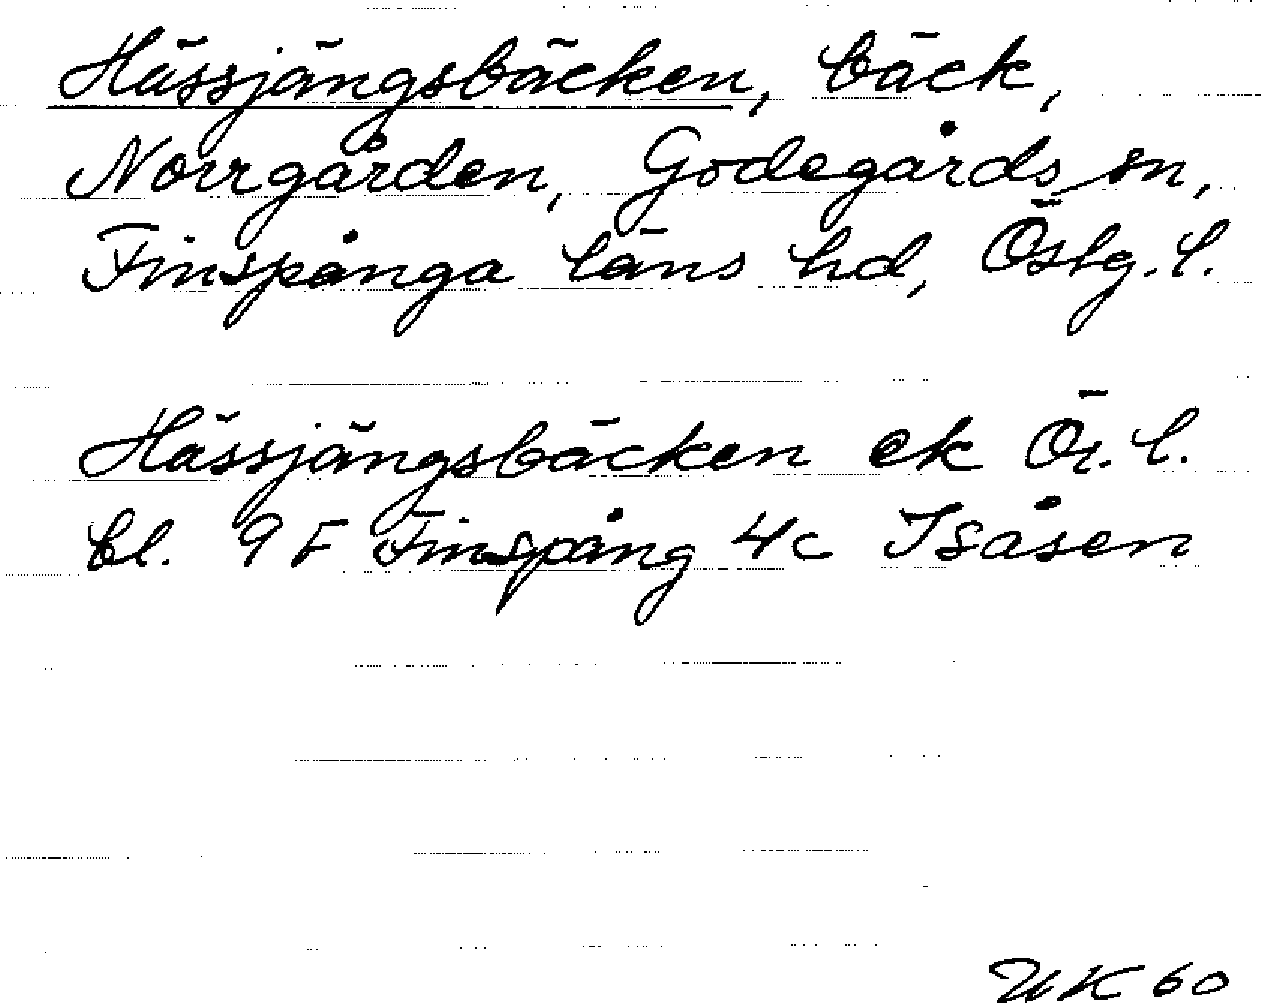 Hässjängsbäcken, bäck,
Norrgården, Godegårds sn,
Finspånga läns hd, Östg. l.
Hässjängsbäcken ek Ör. l.
bl. 9F Finspång 4c Isåsen
UK 60